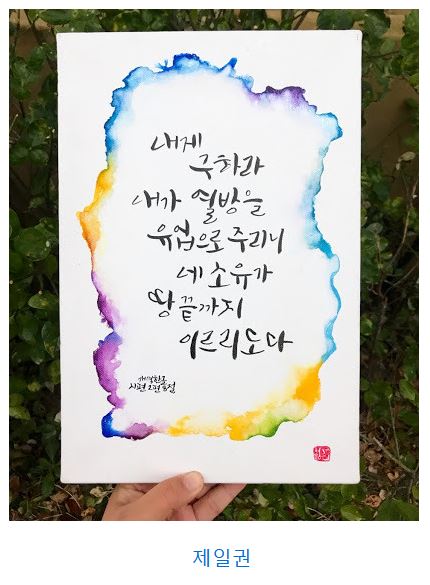 내게
구하라
내가 열방을
유업으로 주리니
네 소유가
땅 끝까지
이르리로다
개역한글
시편 2편 8절
제일권